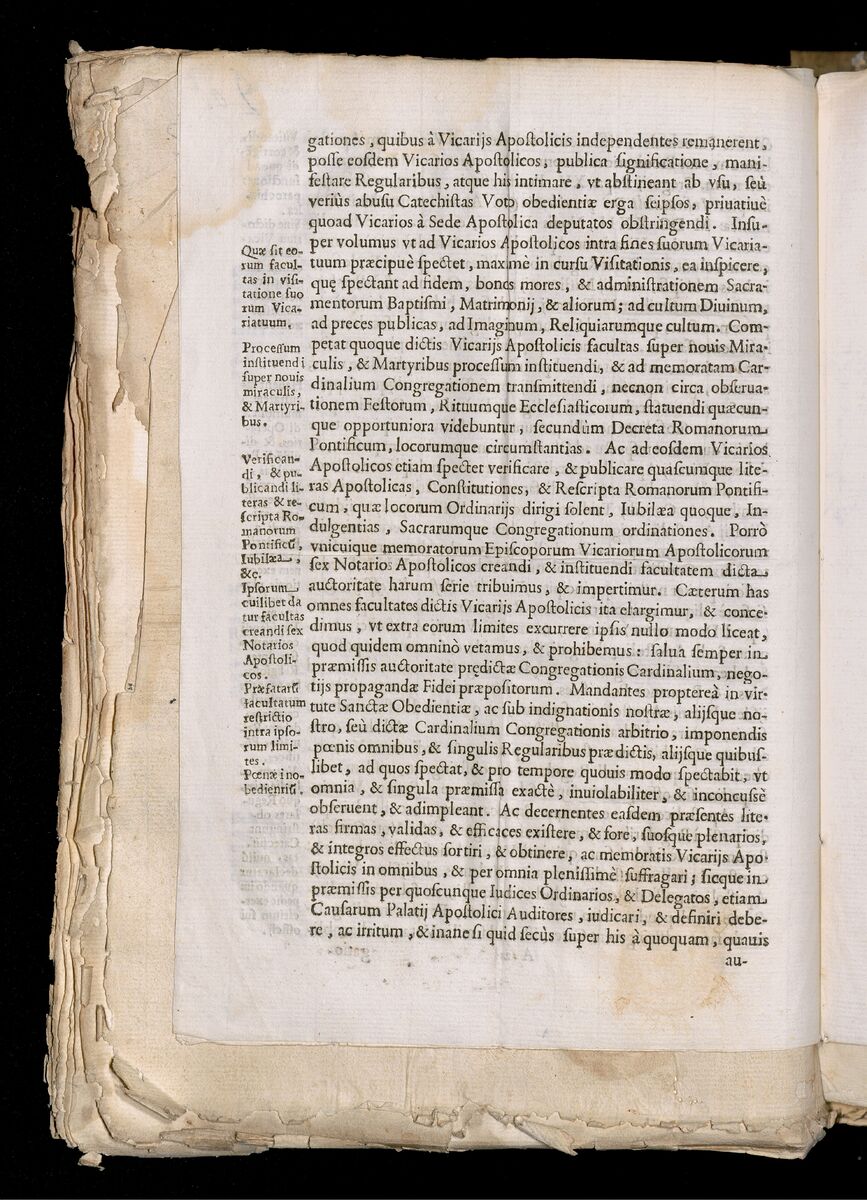 gationes, quibus à Vicarijs Apostolicis independentes remanerent,
posse eosdem Vicarios Apostolicos, publica significatione, mani-
festare Regularibus, atque his intimare, vt abstineant ab vsu, seù
veriùs abusu Catechistas Voto obedientiæ erga seipsos, priuatiuè
quoad Vicarios à Sede Apostolica deputatos obstringendi. Insu-
per volumus vt ad Vicarios Apostolicos intra fines suorum Vicaria-
tuum præcipuè spectet, maximè in cursu Visitationis, ea inspicere,
quę spectant ad fidem, bonos mores, & administrationem Sacra-
mentorum Baptismi, Matrimonij, & aliorum; ad cultum Diuinum,
ad preces publicas, ad Imaginum, Reliquiarumque cultum. Com-
petat quoque dictis Vicarijs Apostolicis facultas super nouis Mira-
culis, & Martyribus processum instituendi, & ad memoratam Car-
dinalium Congregationem transmittendi, necnon circa obserua-
tionem Festorum, Rituumque Ecclesiasticorum, statuendi quæcun-
que opportuniora videbuntur, secundùm Decreta Romanorum
Pontificum, locorumque circumstantias. Ac ad eosdem Vicarios
Apostolicos etiam spectet verificare, & publicare quascumque lite-
ras Apostolicas, Constitutiones, & Rescripta Romanorum Pontifi-
cum, quæ locorum Ordinarijs dirigi solent, Iubilæa quoque, In-
dulgentias, Sacrarumque Congregationum ordinationes. Porrò
vnicuique memoratorum Episcoporum Vicariorum Apostolicorum
sex Notarios Apostolicos creandi, & instituendi facultatem dicta
auctoritate harum serie tribuimus, & impertimur. Cæterum has
omnes facultates dictis Vicarijs Apostolicis ita elargimur, & conce-
dimus, vt extra eorum limites excurrere ipsis nullo modo liceat,
quod quidem omninò vetamus, & prohibemus: salua semper in
præmissis auctoritate prędictæ Congregationis Cardinalium, nego-
tijs propagandæ Fidei præpositorum. Mandantes proptereà in vir-
tute Sanctæ Obedientiæ, ac sub indignationis nostræ, alijsque no-
stro, seù dictæ Cardinalium Congregationis arbitrio, imponendis
pœnis omnibus, & singulis Regularibus prædictis, alijsque quibus-
libet, ad quos spectat, & pro tempore quouis modo spectabit, vt
omnia, & singula præmissa exactè, inuiolabiliter, & inconcussè
obseruent, & adimpleant. Ac decernentes easdem præsentes lite-
ras firmas, validas, & efficaces existere, & fore, suosque plenarios,
& integros effectus sortiri, & obtinere, ac memoratis Vicarijs Apo-
stolicis in omnibus, & per omnia plenissimè suffragari; sicque in
præmissis per quoscunque Iudices Ordinarios, & Delegatos, etiam
Causarum Palatij Apostolici Auditores, iudicari, & definiri debe-
re, ac irritum, & inane si quid secùs super his à quoquam, quauis
au-
Quæ sit eo-
rum facul-
tas in visi-
tatione suo
rum Vica-
riatuum.
Processum
instituendi
super nouis
miraculis,
& Martyri-
bus.
Verifican-
di, & pu-
blicandi li-
teras & re-
scripta Ro-
manorum
Pontificũ,
Iubilæa,
&c.
Ipsorum
cuilibet da
tur facultas
creandi sex
Notarios
Apostoli-
cos.
Præfatarũ
facultatum
restrictio
intra ipso-
rum limi-
tes.
Pœnæ ino-
bedientiũ.